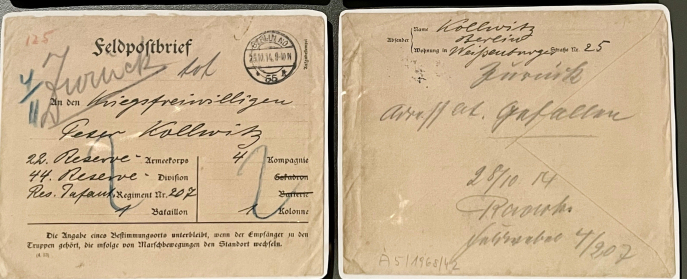 125
Feldpostbrief
BERLIN NO
55
Zurück tot
An den Kriegsfreiwilligen
Peter Kollwitz
22. Reserve- Armeekorps 4 Kompagnie
44. Reserve- Division Eskadron
Res. Infant. Regiment Nr. 207 Batterie
Bataillon Kolonne
Die Angabe eines Bestimmungsorts unterbleibt, wenn der Empfänger zu den
Truppen gehört, die infolge von Marschbewegungen den Standort wechseln.
Absender
Name Kollwitz
Berlin
Wohnung in Weißenburger Straße Nr. 25
Zurück
Adressat Gefallen
28/10 14
Feldwebel 4/207
A5/1968/42